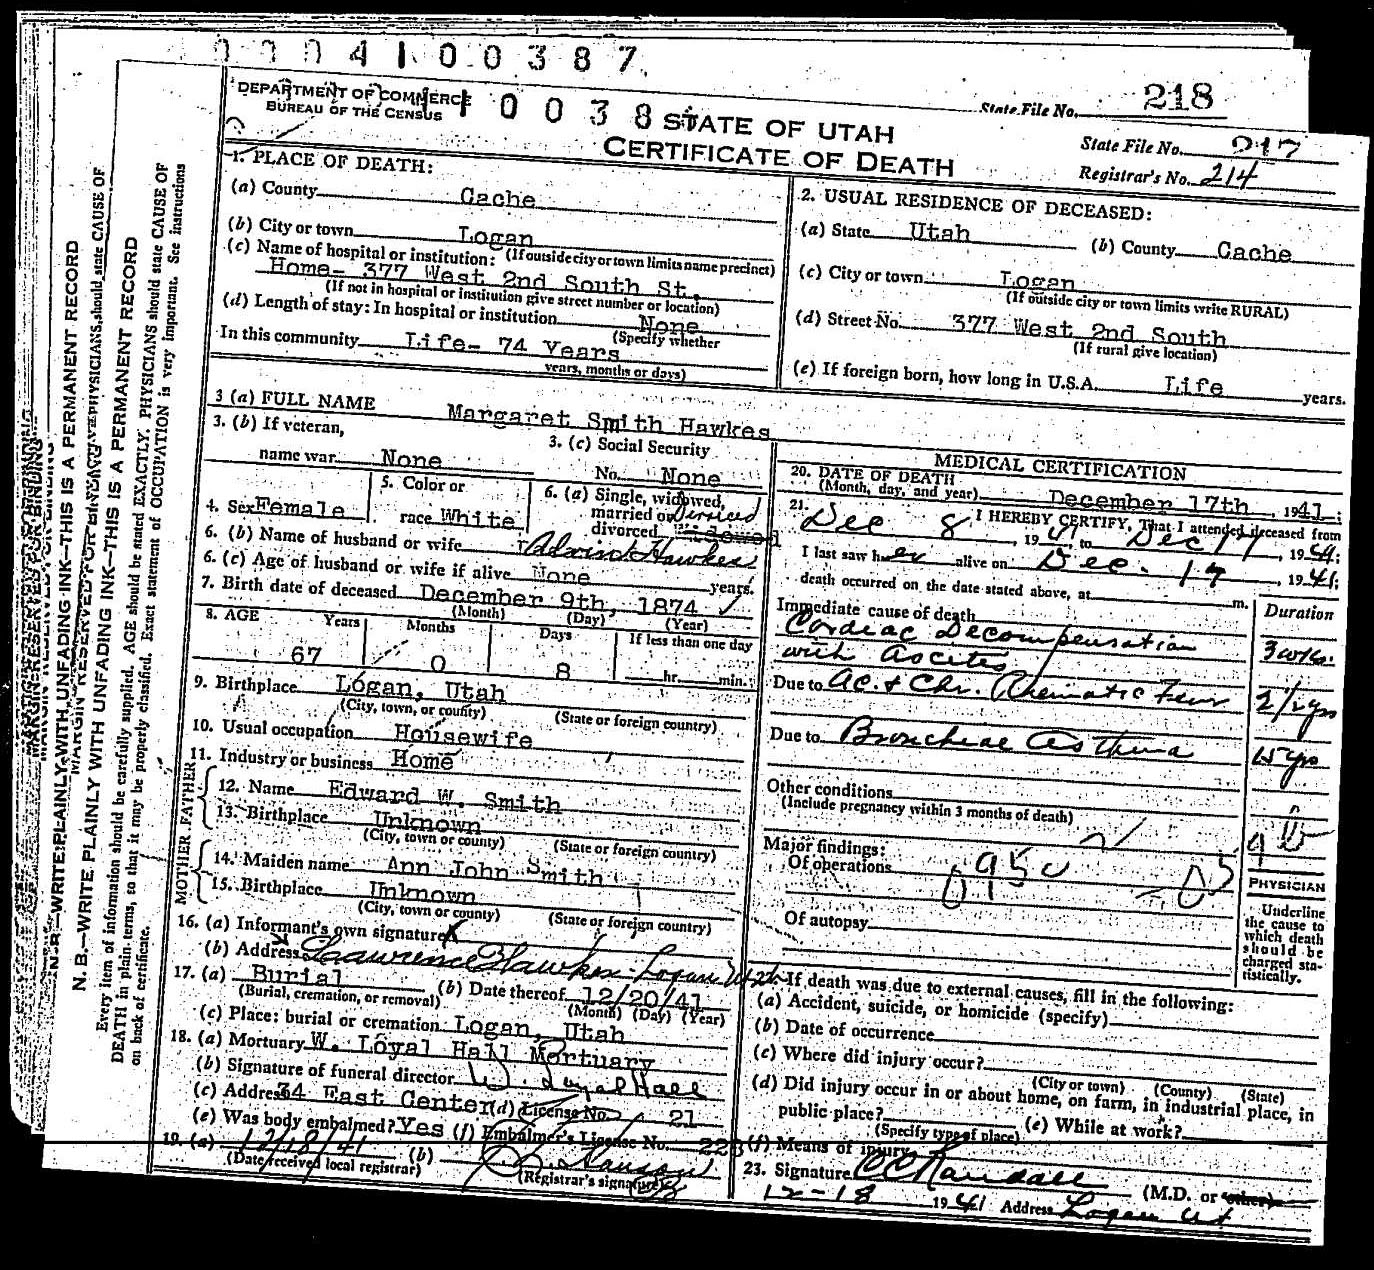 0004100387
218
State File No.
DEPARTMENT OF COMMERCE
BUREAU OF THE CENSUS
1 0 0 3 8
STATE OF UTAH
CERTIFICATE OF DEATH
State File No. 217
Registrar's No. 214
1. PLACE OF DEATH:
(a) County Cache
(b) City or town Logan
(If outside city or town limits name precinct)
(c) Name of hospital or institution:
Home- 377 West 2nd South St.
(If not in hospital or institution give street number or location)
(d) Length of stay: In hospital or institution None
(Specify whether
In this community Life- 74 Years
years, months or days)
2. USUAL RESIDENCE OF DECEASED:
(a) State Utah (b) County Cache
(c) City or town Logan
(If outside city or town limits write RURAL)
(d) Street No. 377 West 2nd South
(If rural give location)
(e) If foreign born, how long in U.S.A. Life years.
3 (a) FULL NAME Margaret Smith Hawkes
3. (b) If veteran,
name war None
3. (c) Social Security
No. None
4. Sex Female
5. Color or
race White
6. (a) Single, widowed,
married or Divorced
divorced Widowed
6. (b) Name of husband or wife Hawkes
6. (c) Age of husband or wife if alive None years.
7. Birth date of deceased December 9th, 1874 ✓
(Month) (Day) (Year)
8. AGE Years Months Days If less than one day
67 0 8 hr. min.
9. Birthplace Logan, Utah
(City, town, or county) (State or foreign country)
10. Usual occupation Housewife
11. Industry or business Home
FATHER
12. Name Edward W. Smith
13. Birthplace Unknown
(City, town or county) (State or foreign country)
MOTHER
14. Maiden name Ann John Smith
15. Birthplace Unknown
(City, town or county) (State or foreign country)
16. (a) Informant's own signature X
(b) Address Lawrence Hawkes Logan Utah
17. (a) Burial (b) Date thereof 12/20/41
(Burial, cremation, or removal) (Month) (Day) (Year)
(c) Place: burial or cremation Logan, Utah
18. (a) Mortuary W. Loyal Hall Mortuary
(b) Signature of funeral director W. Loyal Hall
(c) Address 34 East Center (d) License No. 21
(e) Was body embalmed? Yes (f) Embalmer's License No. 223
19. (a) 12/18/41 (b)
(Date received local registrar) (Registrar's signature)
MEDICAL CERTIFICATION
20. DATE OF DEATH
(Month, day, and year) December 17th, 1941;
21. I HEREBY CERTIFY, That I attended deceased from
Dec 8, 1941 to Dec 17, 1941;
I last saw her alive on Dec. 17, 1941;
death occurred on the date stated above, at m.
Immediate cause of death Duration
Cordiac Decompensation
with Ascites 3 wks.
Due to Ac. & Chr. Rhematic Fever 2 1/2 yrs
Due to Bronchial Asthma 15 yrs
Other conditions
(Include pregnancy within 3 months of death)
Major findings:
Of operations
Of autopsy
PHYSICIAN
Underline
the cause to
which death
should be
charged sta-
tistically.
If death was due to external causes, fill in the following:
(a) Accident, suicide, or homicide (specify)
(b) Date of occurrence
(c) Where did injury occur?
(City or town) (County) (State)
(d) Did injury occur in or about home, on farm, in industrial place, in
public place? (e) While at work?
(Specify type of place)
(f) Means of injury
23. Signature C C Randall (M.D. or other)
12-18 1941 Address Logan Ut
N. B.—WRITE PLAINLY WITH UNFADING INK—THIS IS A PERMANENT RECORD
Every item of information should be carefully supplied. AGE should be stated EXACTLY. PHYSICIANS should state CAUSE OF
DEATH in plain terms, so that it may be properly classified. Exact statement of OCCUPATION is very important. See instructions
on back of certificate.